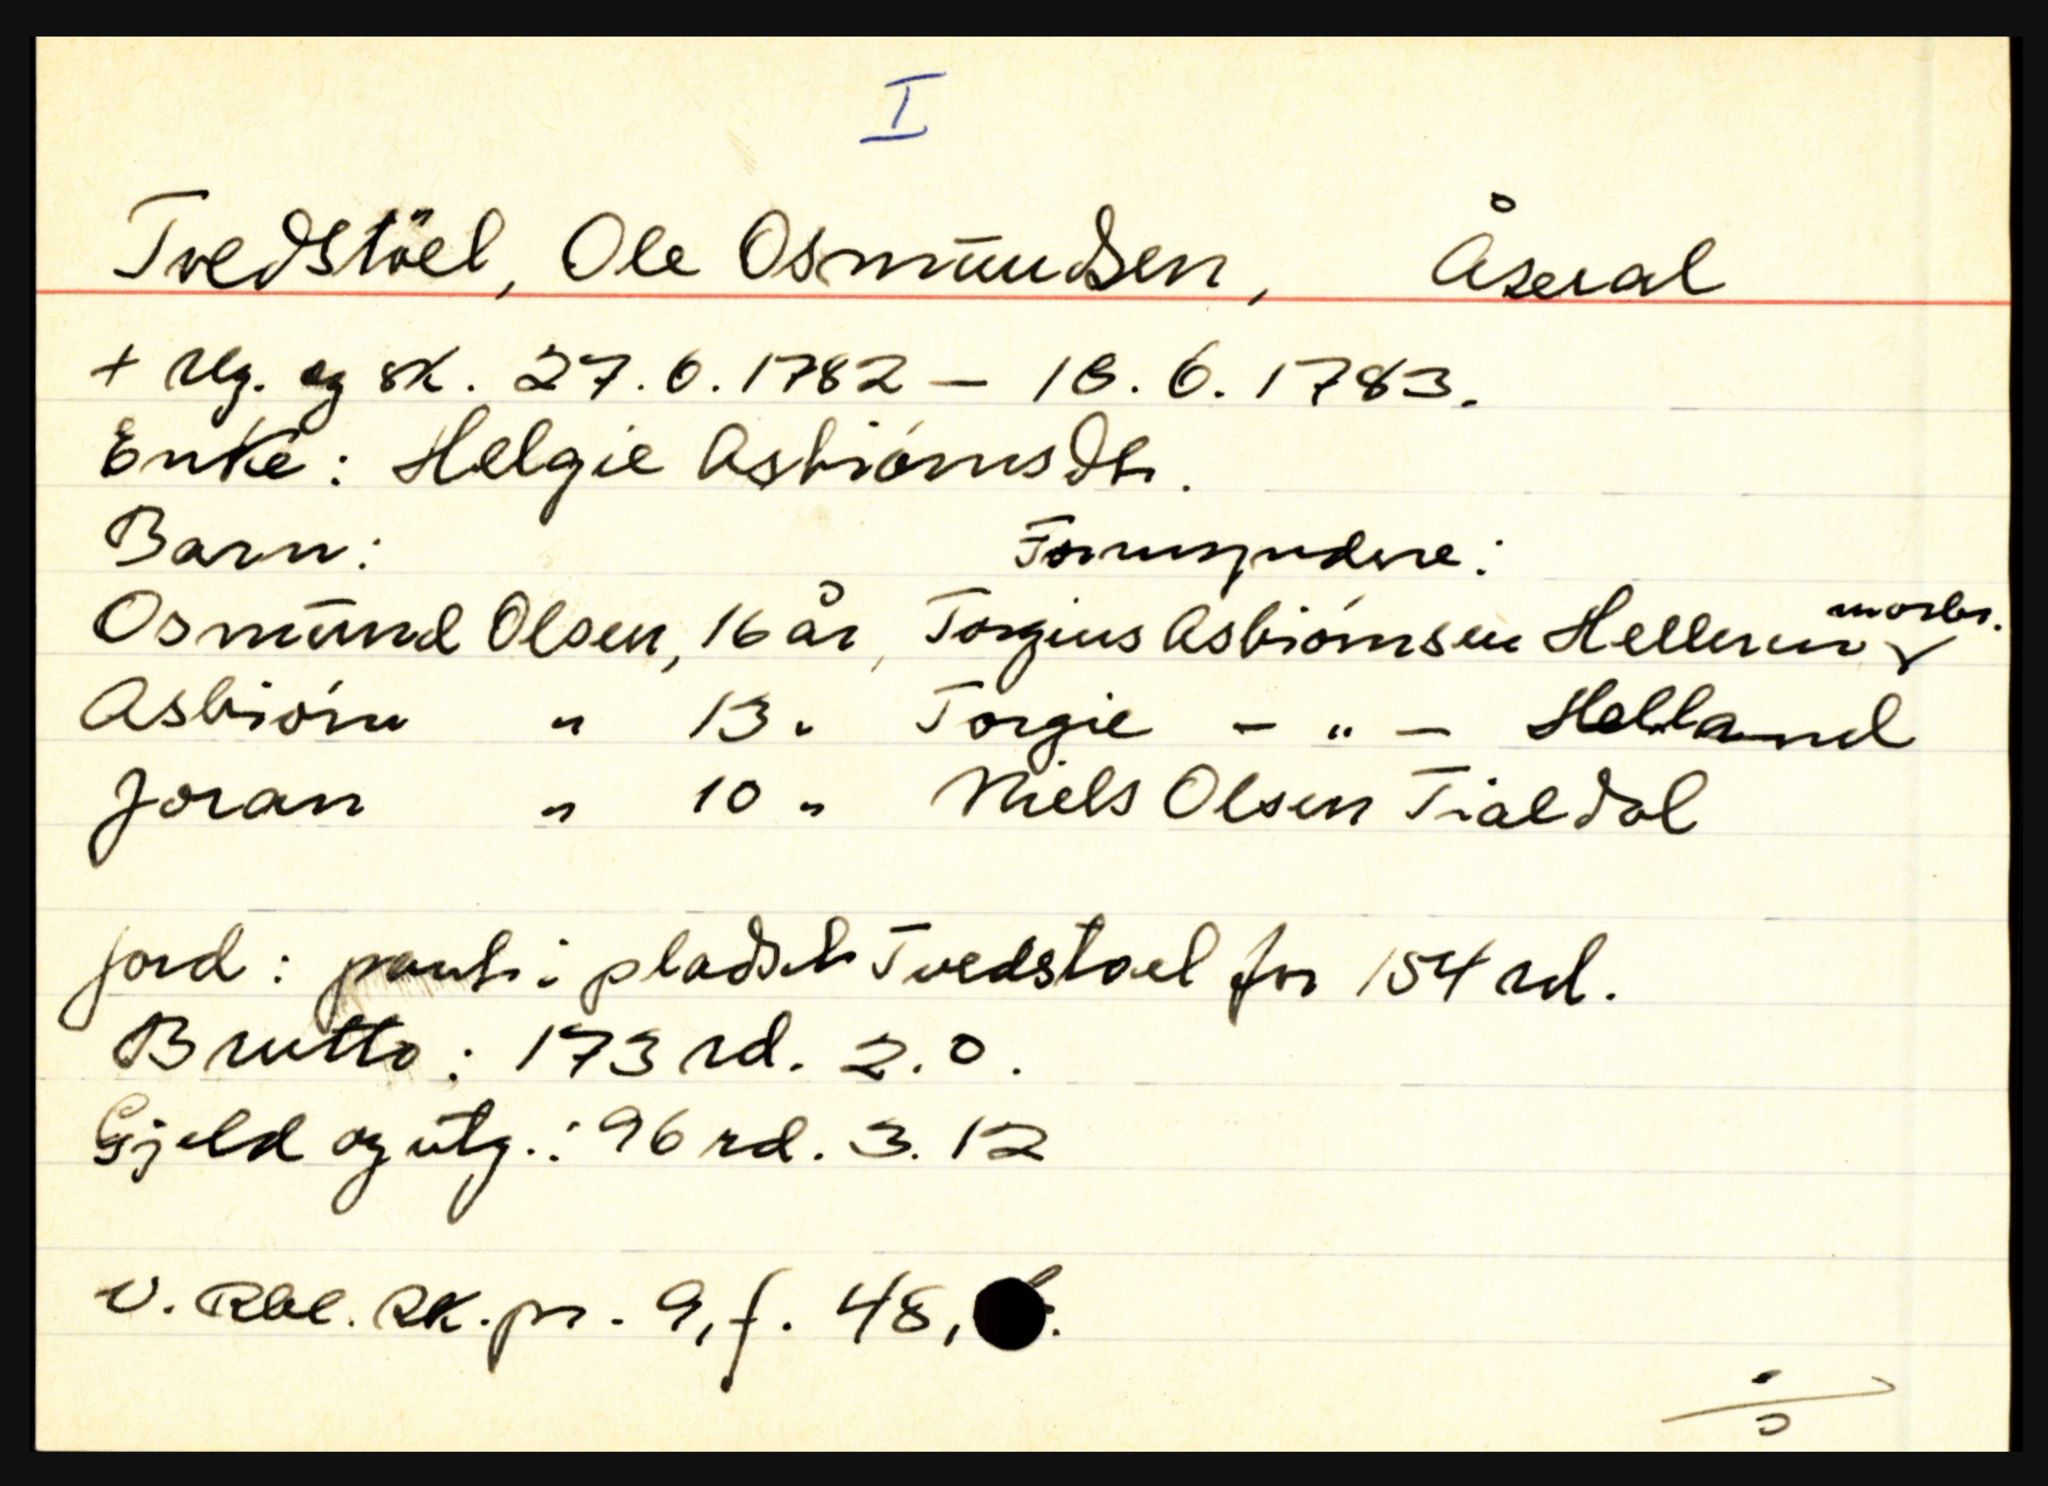 I
Tvedstöel, Ole Osmundsen, Åseral
+ reg. og sk. 27.6.1782 – 18.6.1783.
Enke: Helgie Asbiörnsdtr.
Barn: Formyndere:
Osmund Olsen, 16 år, Torgius Asbiörnsen Helleren morbr.
Asbiörn " 13 " Torgie – " – Helland
Joran " 10 " Niels Olsen Tialdal
Jord: part i pladset Tvedstoel for 154 rd.
Brutto: 173 rd. 2.0.
Gjeld og utg.: 96 rd. 3. 12
V. Rbl. Sk.pr. 9, f. 48,